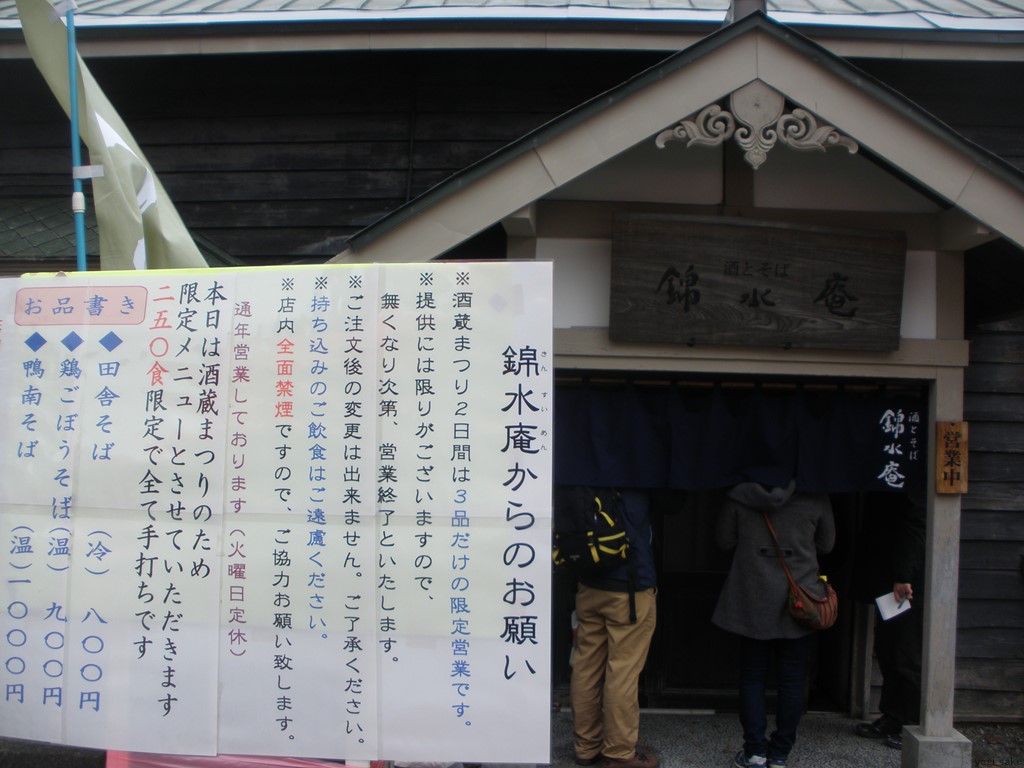 錦水庵からのお願い
きん すい あん
※酒蔵まつり2日間は3品だけの限定営業です。
※提供には限りがございますので、
無くなり次第、営業終了といたします。
※ご注文後の変更は出来ません。ご了承ください。
※持ち込みのご飲食はご遠慮ください。
※店内全面禁煙ですので、ご協力お願い致します。
通年営業しております(火曜日定休)
本日は酒蔵まつりのため
限定メニューとさせていただきます
二五〇食限定で全て手打ちです
お品書き
◆田舎そば (冷) 八〇〇円
◆鶏ごぼうそば(温) 九〇〇円
◆鴨南そば (温)一〇〇〇円
酒とそば
錦水庵
酒とそば
錦水庵
営業中